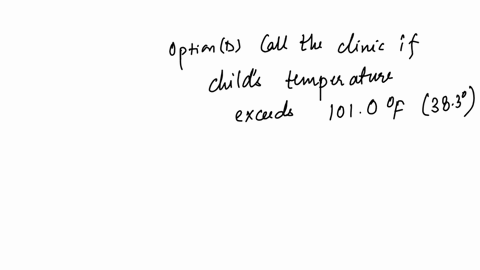 Option(D) Call the clinic if
child's temperature
exceeds 101.0 °F (38.3°)